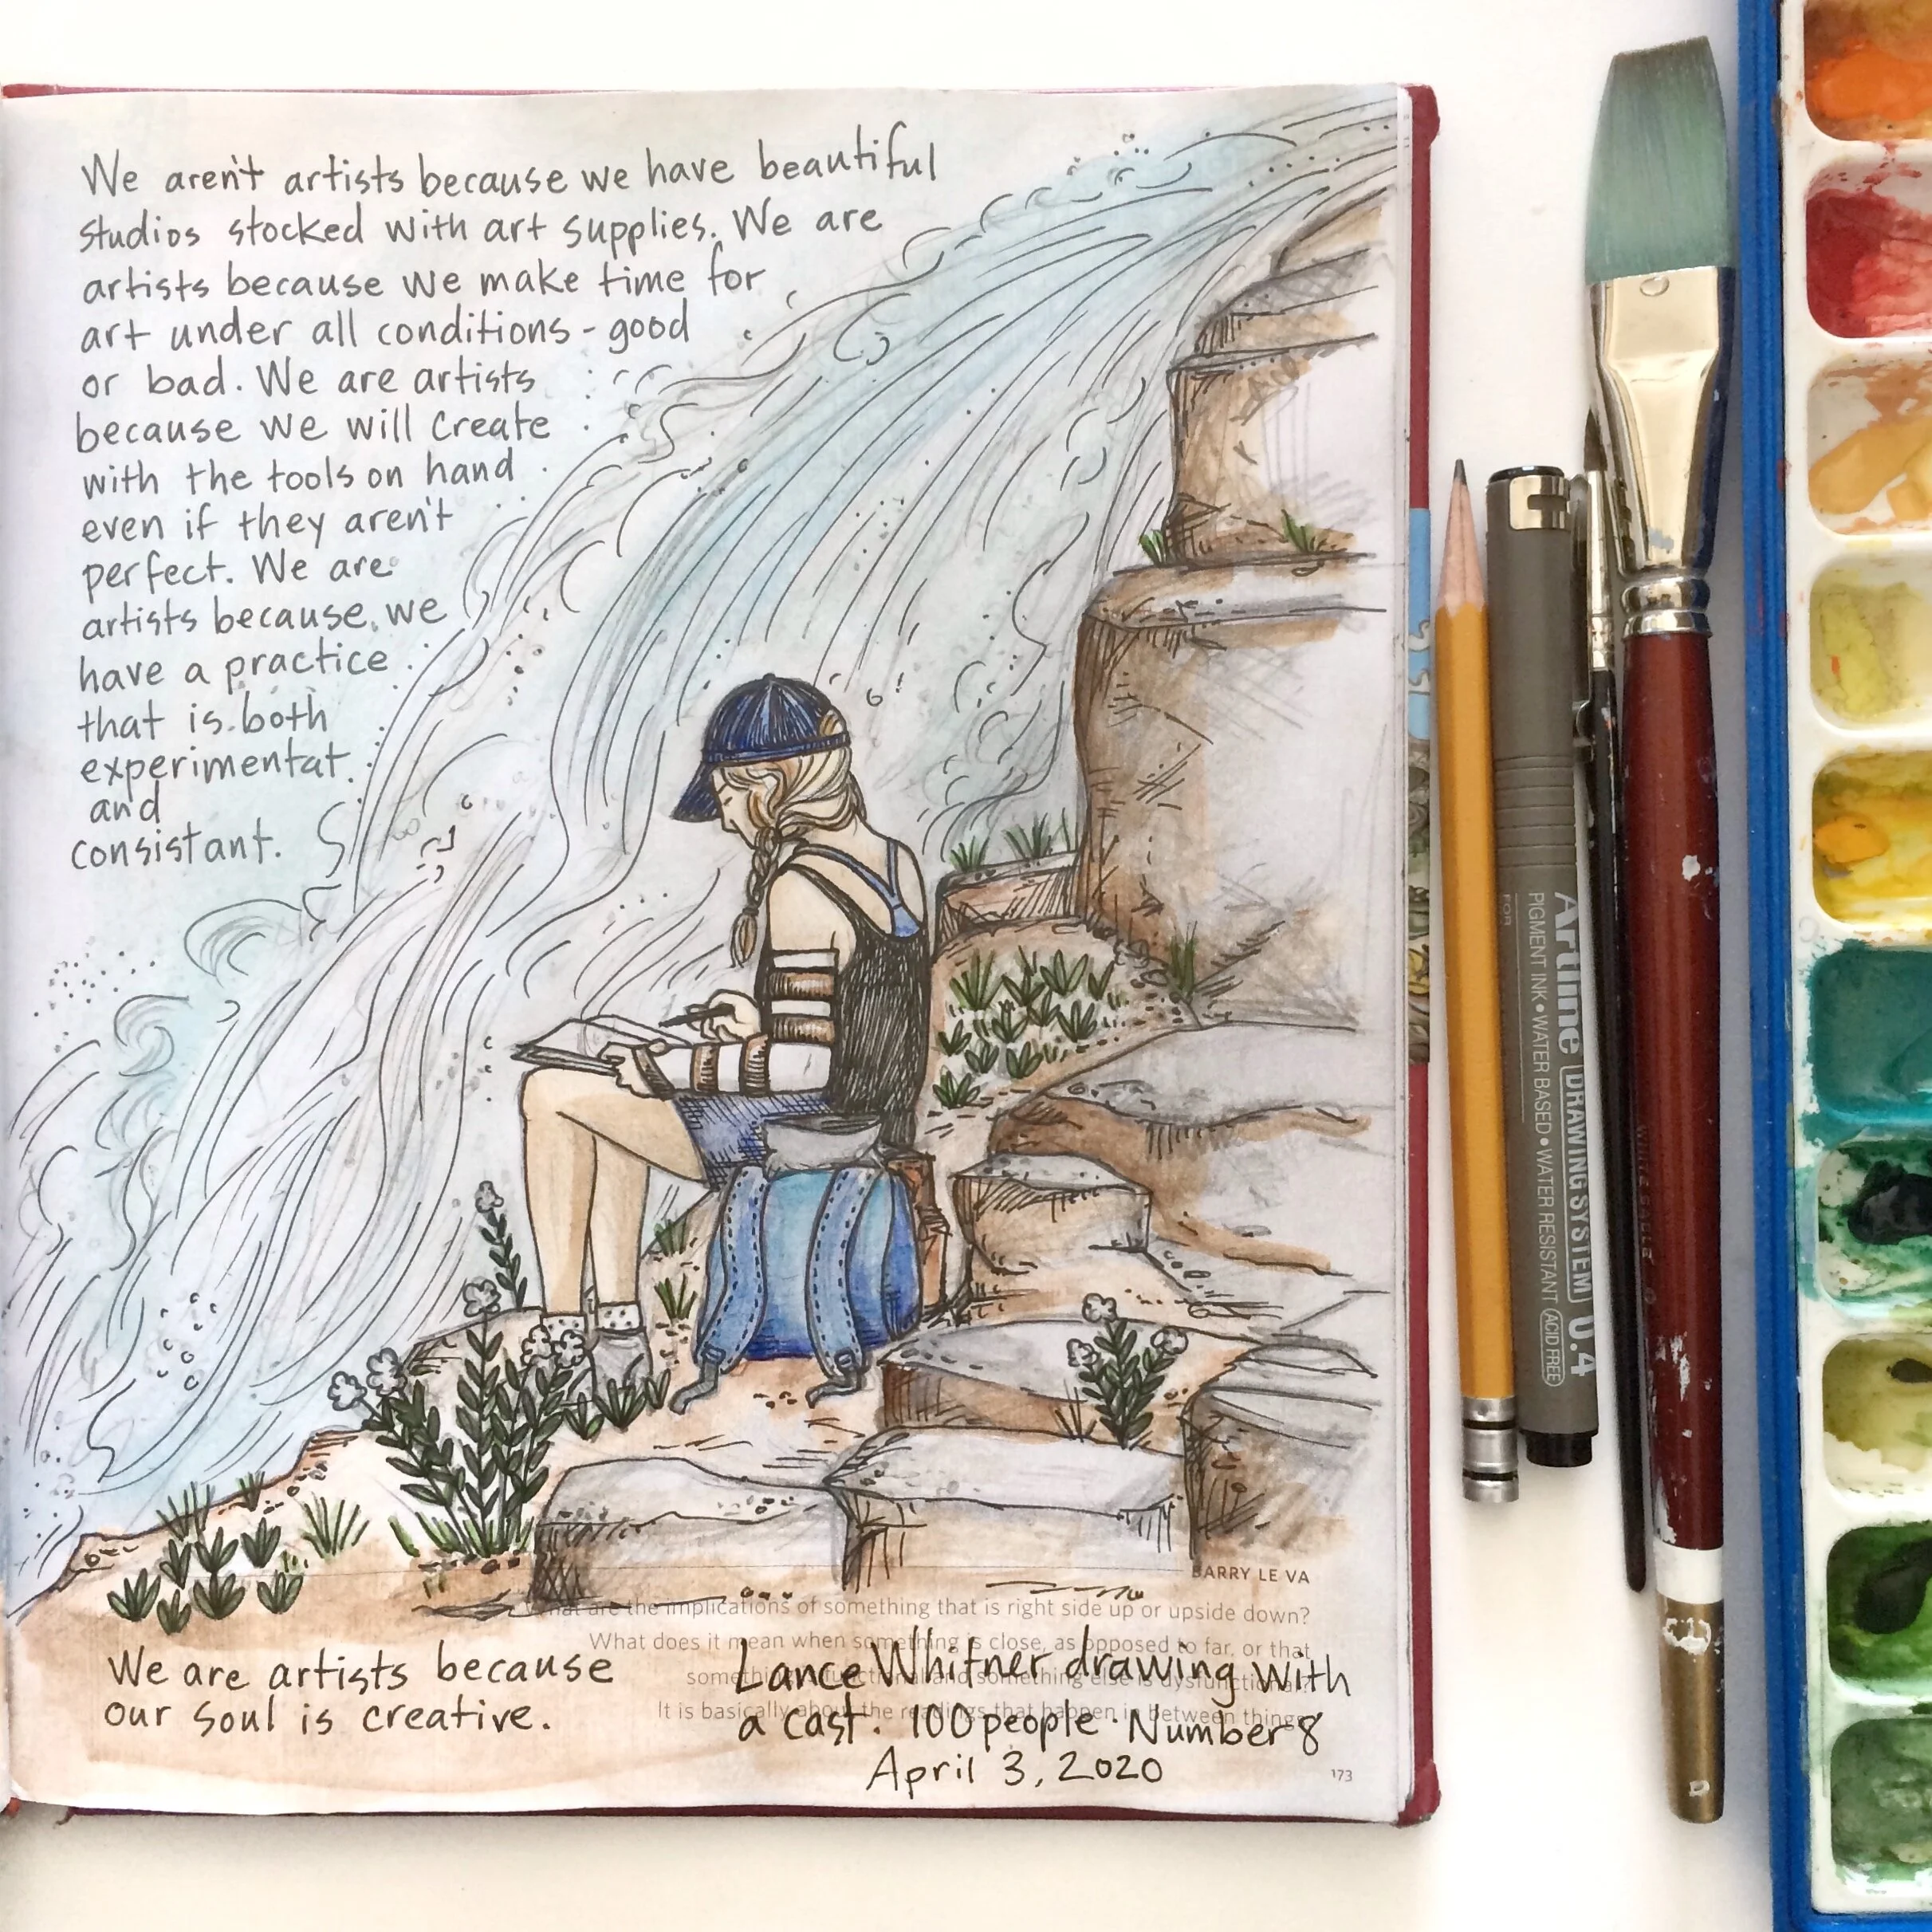 We aren't artists because we have beautiful
studios stocked with art supplies. We are
artists because we make time for
art under all conditions - good
or bad. We are artists
because we will create
with the tools on hand
even if they aren't
perfect. We are
artists because we
have a practice
that is both
experimentat
and
consistant.
BARRY LE VA
What are the implications of something that is right side up or upside down?
What does it mean when something is close, as opposed to far, or that
something is functional and something else is dysfunctional?
It is basically about the readings that happen in between things.
We are artists because
our soul is creative.
Lance Whitner drawing with
a cast. 100 people. Number 8
April 3, 2020
173
Artline DRAWING SYSTEM 0.4
PIGMENT INK • WATER BASED • WATER RESISTANT ACID FREE
FOR